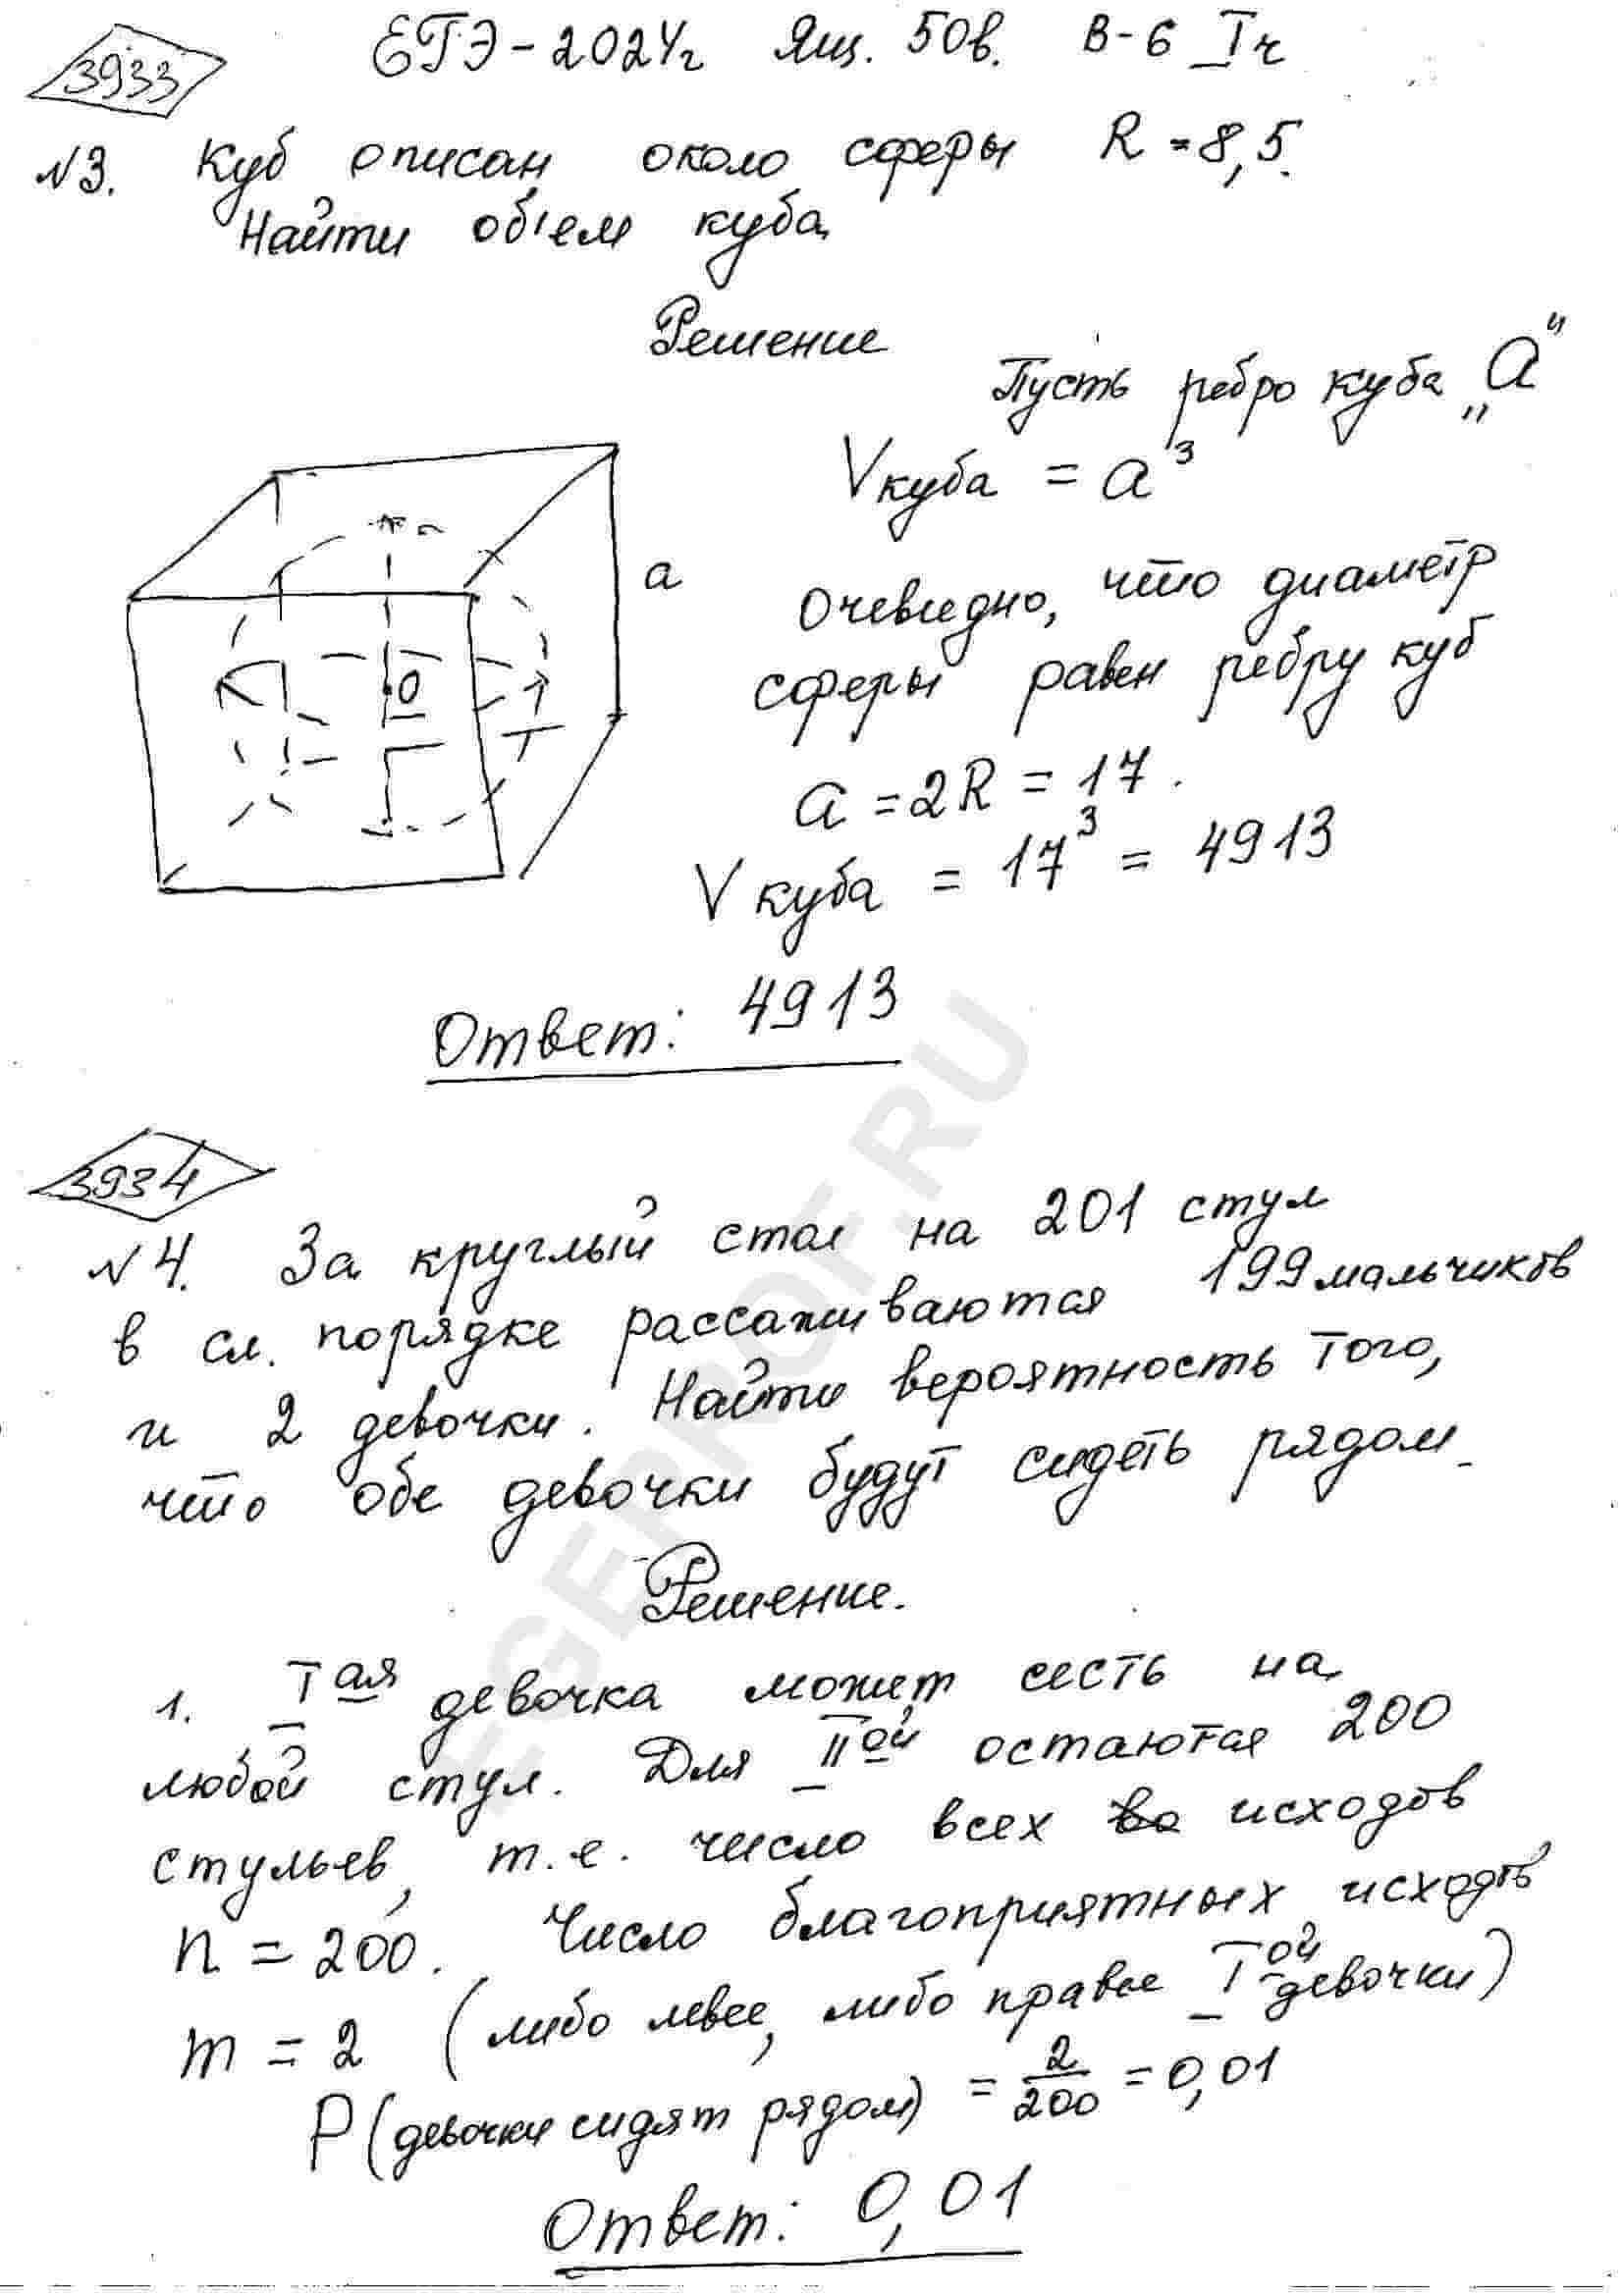 3933
ЕГЭ-2024г Ящ. 50в. В-6 Iч
№3. Куб описан около сферы R=8,5.
Найти об'ем куба
Решение
Пусть ребро куба „a"
Vкуба = a³
a
Очевидно, что диаметр
сферы равен ребру куб
O
a = 2R = 17.
V куба = 17³ = 4913
Ответ: 4913
3934
№4. За круглый стол на 201 стул
в сл. порядке рассаживаются 199 мальчиков
и 2 девочки. Найти вероятность того,
что обе девочки будут сидеть рядом.
Решение.
1. Iая девочка может сесть на
любой стул. Для IIой остаются 200
стульев, т.е. число всех исходов
n = 200. Число благоприятных исходов
m = 2 (либо левее, либо правее Iой девочки)
P(девочки сидят рядом) = 2/200 = 0,01
Ответ: 0,01
EGEPROF.RU